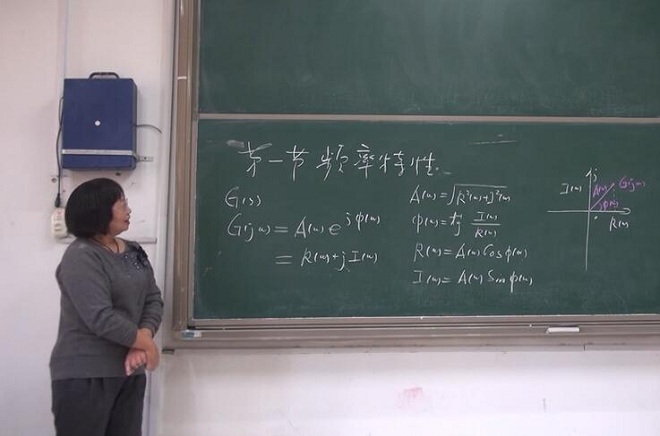 第一节 频率特性
G(s)
G(jω) = A(ω) e^{jφ(ω)}
= R(ω) + j I(ω)
A(ω) = √(R²(ω)+I²(ω))
φ(ω) = tg I(ω)/R(ω)
R(ω) = A(ω) Cosφ(ω)
I(ω) = A(ω) Sinφ(ω)
j
I(ω)
A(ω)
G(jω)
φ(ω)
R(ω)